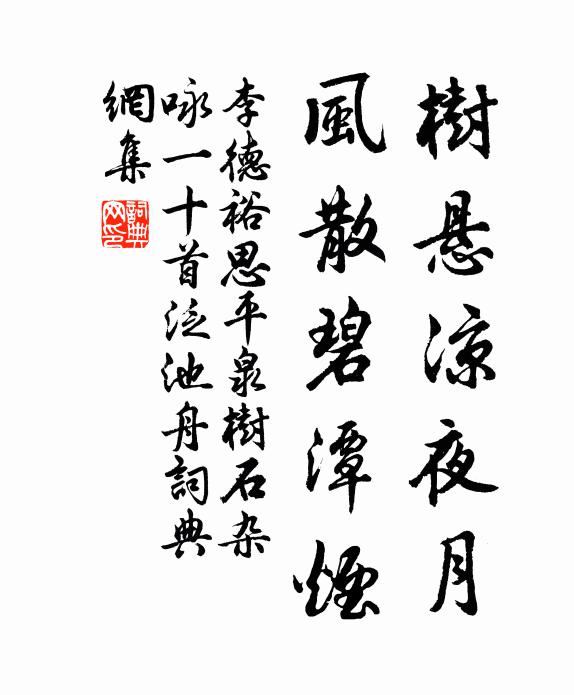 樹悬凉夜月
風散碧潭煙
李德裕思平泉樹石杂
咏一十首泛池舟詞典
網集
詞典
网印